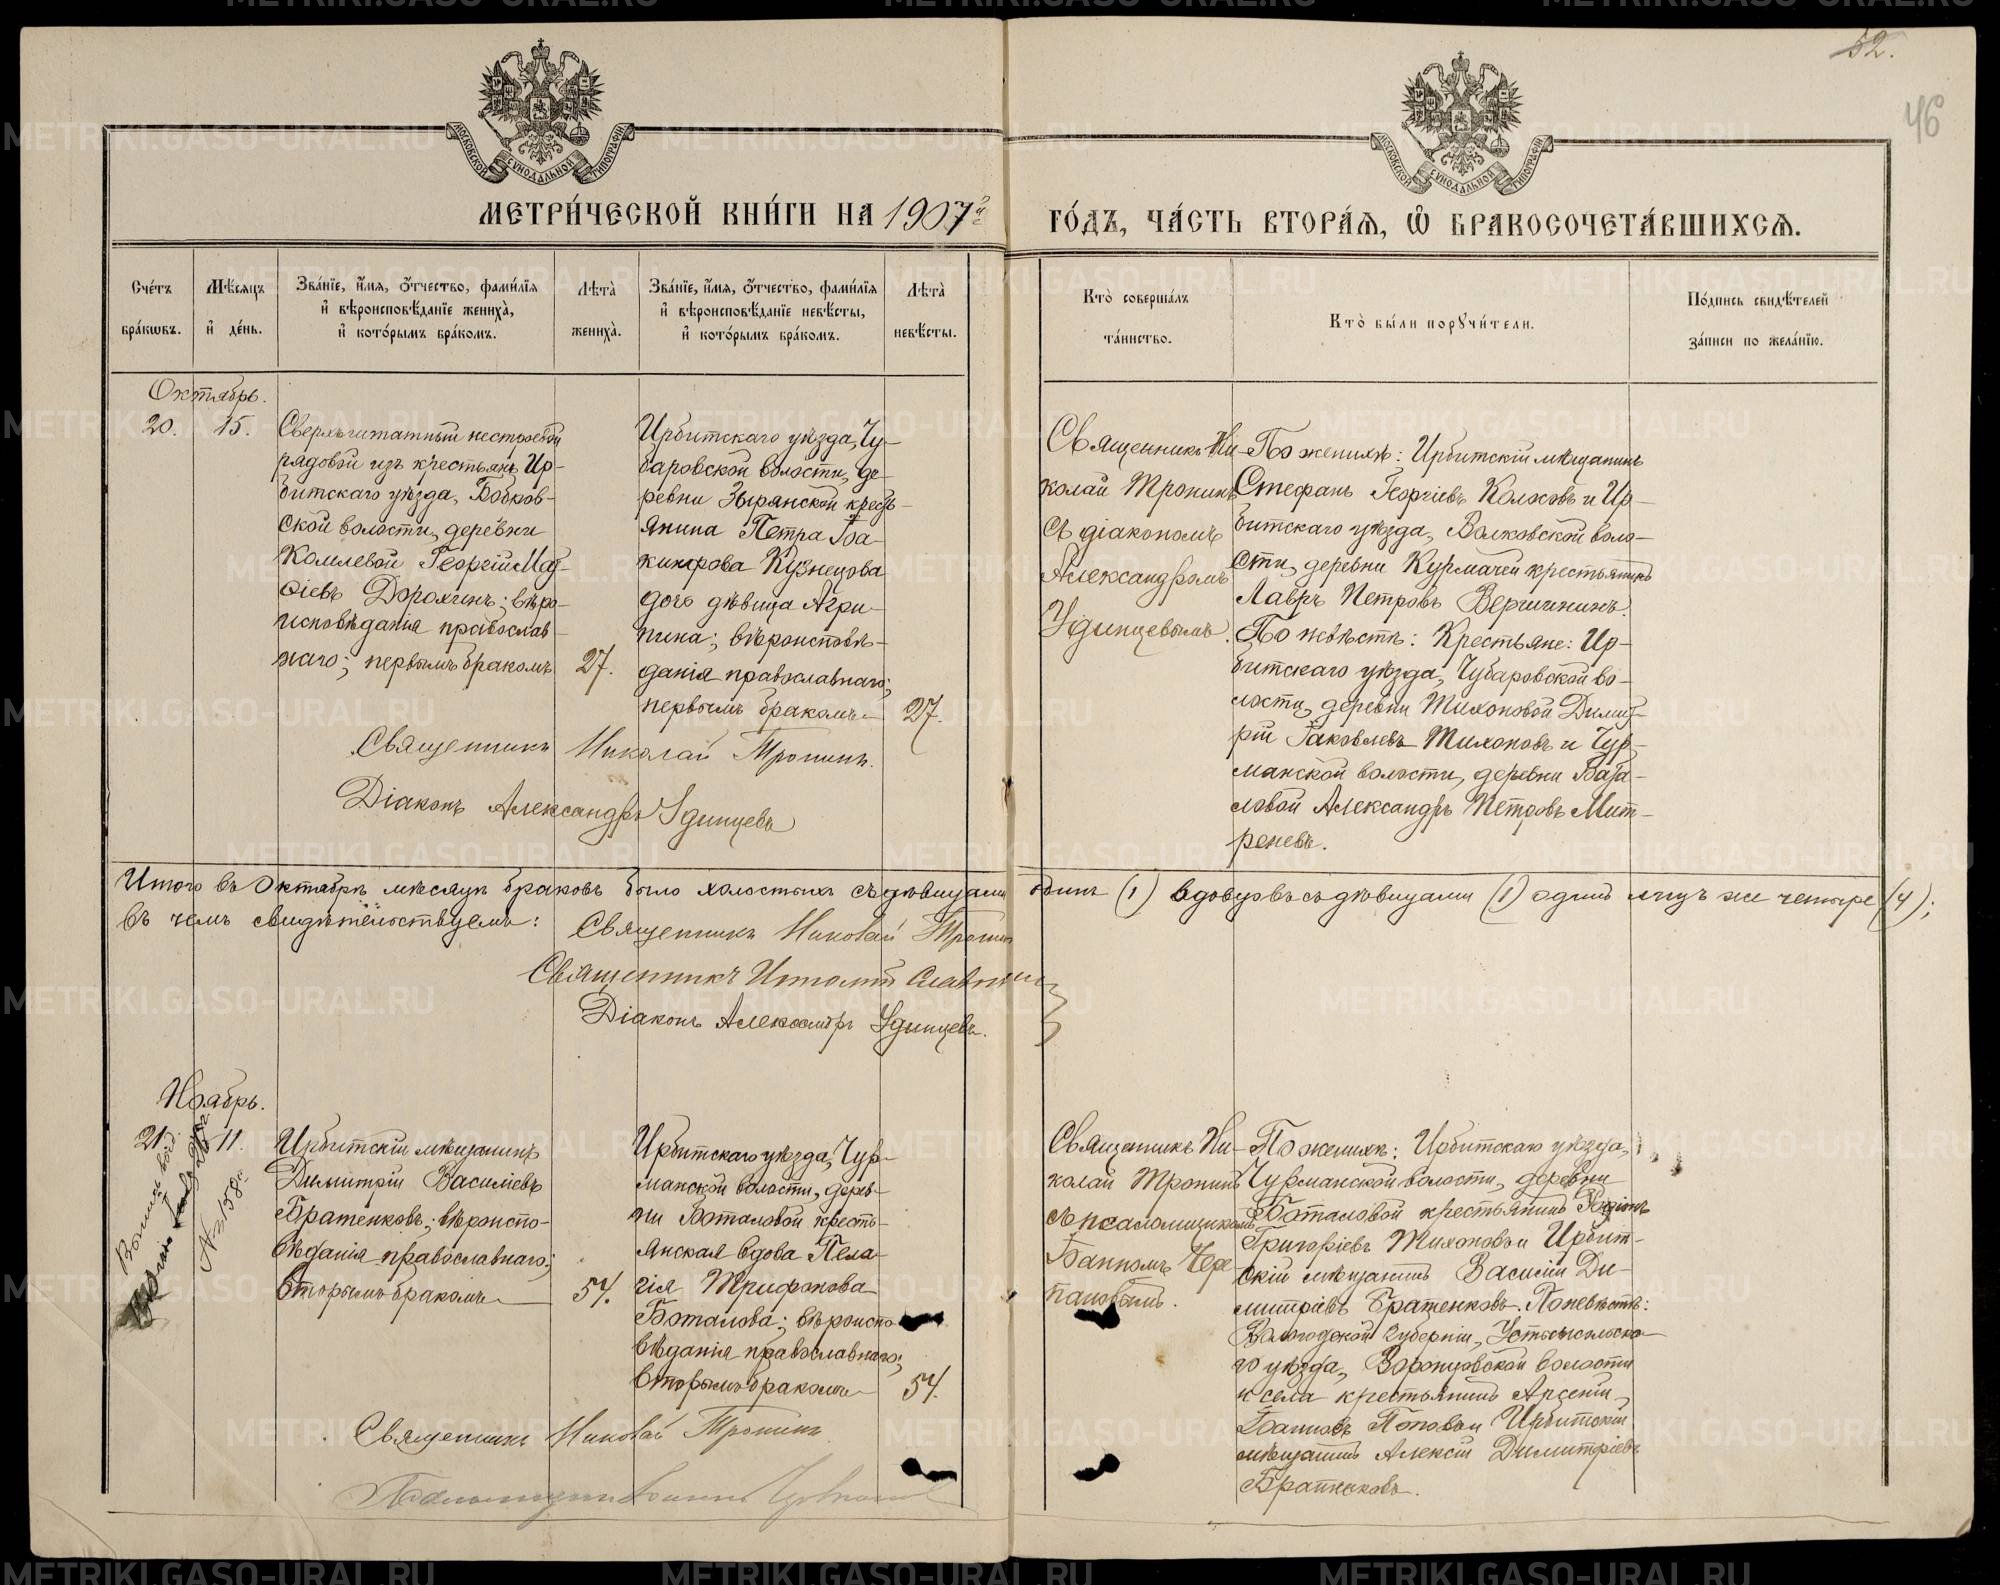 52.
46
МОСКОВСКОЙ СѴНОДАЛЬНОЙ ТИПОГРАФІИ
МОСКОВСКОЙ СѴНОДАЛЬНОЙ ТИПОГРАФІИ
МЕТРИ́ЧЕСКОЙ КНИ́ГИ НА 1907й
ГО́ДЪ, ЧА́СТЬ ВТОРА́Ѧ, Ѿ БРАКОСОЧЕТА́ВШИХСѦ.
Сче́тъ бра́кѡвъ.
Мѣ́сѧцъ и҆ де́нь.
Зва́нїе, и҆́мѧ, ѻ҆́тчество, фами́лїѧ и҆ вѣроисповѣ́данїе жениха̀, и҆ кото́рымъ бра́комъ.
Лѣта̀ жениха̀.
Зва́нїе, и҆́мѧ, ѻ҆́тчество, фами́лїѧ и҆ вѣроисповѣ́данїе невѣ́сты, и҆ кото́рымъ бра́комъ.
Лѣта̀ невѣ́сты.
Кто̀ соверша́лъ та́инство.
Кто̀ бы́ли порꙋчи́тели.
По́дпись свидѣ́телей за́писи по жела́нїю.
Октябрь.
20.
15.
Сверхштатный нестроевой
рядовой изъ крестьянъ Ир-
битскаго уѣзда, Бобров-
ской волости, деревни
Комлевой Георгій Мат-
ѳіевъ Дорохинъ; вѣро-
исповѣданія православ-
наго; первымъ бракомъ
27.
Ирбитскаго уѣзда, Чу-
баровской волости, де-
ревни Зырянской кресть-
янина Петра Іоа-
кимова Кузнецова
дочь дѣвица Агри-
пина; вѣроисповѣ-
данія православнаго;
первымъ бракомъ
27.
Священникъ Ни-
колай Тронинъ
съ діакономъ
Александромъ
Удинцевымъ.
По женихѣ: Ирбитскій мѣщанинъ
Стефанъ Георгіевъ Колосовъ и Ир-
битскаго уѣзда, Волковской воло-
сти, деревни Курмачей крестьянинъ
Лавръ Петровъ Вершининъ.
По невѣстѣ: Крестьяне: Ир-
битскаго уѣзда, Чубаровской во-
лости, деревни Тихоновой Димит-
рій Іаковлевъ Тихоновъ и Чур-
манской волости, деревни Бота-
ловой Александръ Петровъ Мит-
реневъ.
Священникъ Николай Тронинъ.
Діаконъ Александръ Удинцевъ
Итого въ Октябрѣ мѣсяцѣ браковъ было холостыхъ съ дѣвицами одинъ (1) вдовцовъ съ дѣвицами (1) одинъ лицъ же четыре (4);
въ чемъ свидѣтельствуемъ: Священникъ Николай Тронинъ
Священникъ Ипполитъ Славнинъ
Діаконъ Александръ Удинцевъ.
Ноябрь.
21.
11.
№ 158
Ирбитскій мѣщанинъ
Димитрій Василіевъ
Братенковъ; вѣроиспо-
вѣданія православнаго;
вторымъ бракомъ
54.
Ирбитскаго уѣзда, Чур-
манской волости, дерев-
ни Боталовой кресть-
янская вдова Пела-
гія Трифонова
Боталова; вѣроиспо-
вѣданія православнаго;
вторымъ бракомъ
54.
Священникъ Ни-
колай Тронинъ
съ псаломщикомъ
Іоанномъ Чере-
пановымъ.
По женихѣ: Ирбитскаго уѣзда,
Чурманской волости, деревни
Боталовой крестьянинъ Родіонъ
Григоріевъ Тихоновъ и Ирбит-
скій мѣщанинъ Василій Ди-
митріевъ Братенковъ. По невѣстѣ:
Вологодской губерніи, Устьсысольска-
го уѣзда, Воронцовской волости
и села крестьянинъ Арсеній
Іоанновъ Поповъ и Ирбитскій
мѣщанинъ Алексій Димитріевъ
Братенковъ.
Священникъ Николай Тронинъ.
Псаломщикъ Іоаннъ Черепановъ